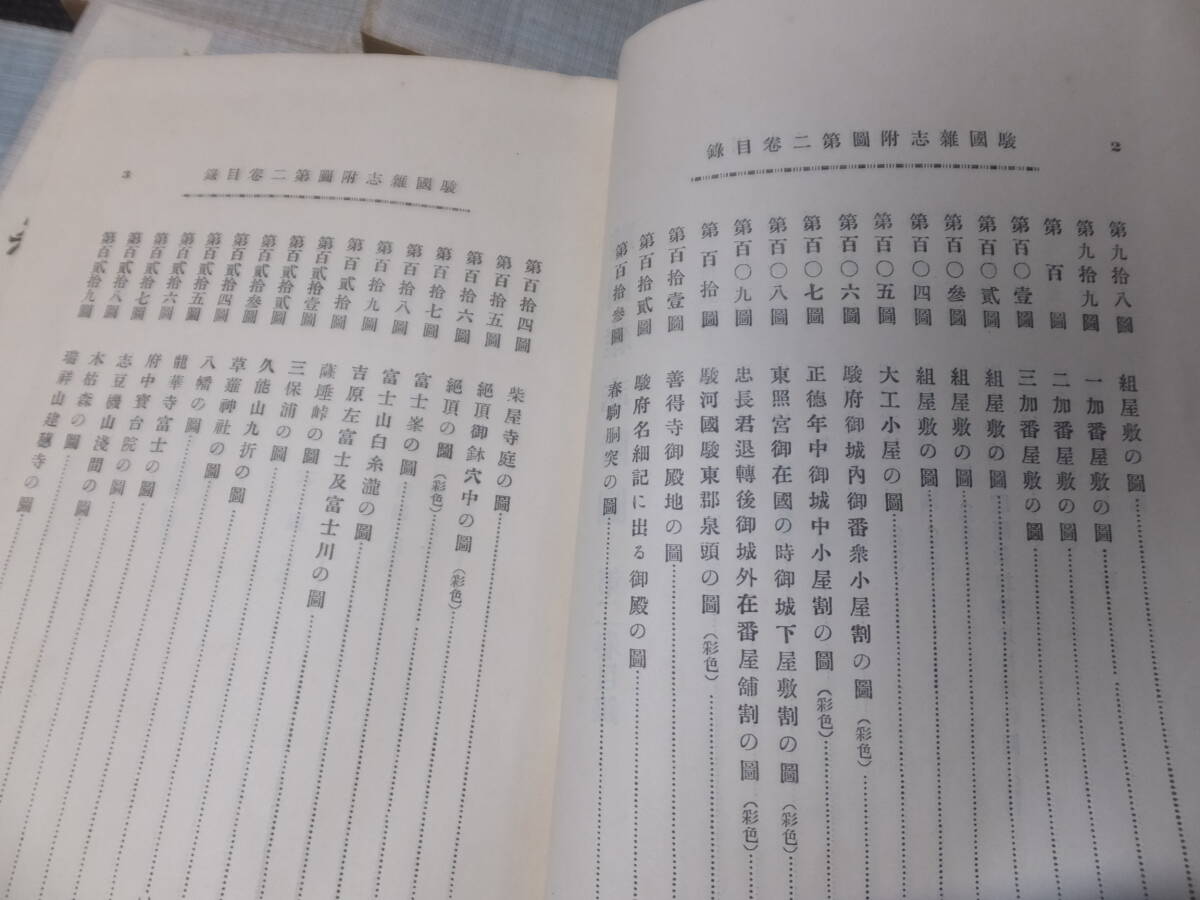 2
駿國雜志附圖第二卷目錄
第九拾八圖 組屋敷の圖
第九拾九圖 一加番屋敷の圖
第百圖 二加番屋敷の圖
第百〇壹圖 三加番屋敷の圖
第百〇貳圖 組屋敷の圖
第百〇參圖 組屋敷の圖
第百〇四圖 組屋敷の圖
第百〇五圖 大工小屋の圖
第百〇六圖 駿府御城內御番衆小屋割の圖(彩色)
第百〇七圖 正德年中御城中小屋割の圖(彩色)
第百〇八圖 東照宮御在國の時御城下屋敷割の圖(彩色)
第百〇九圖 忠長君退轉後御城外在番屋舖割の圖(彩色)
第百拾圖 駿河國駿東郡泉頭の圖(彩色)
第百拾壹圖 善得寺御殿地の圖
第百拾貳圖 駿府名細記に出る御殿の圖
第百拾參圖 春駒胴突の圖
駿國雜志附圖第二卷目錄
3
第百拾四圖 柴屋寺庭の圖
第百拾五圖 絕頂御鉢穴中の圖(彩色)
第百拾六圖 絕頂の圖(彩色)
第百拾七圖 富士峯の圖
第百拾八圖 富士山白糸瀧の圖
第百拾九圖 吉原左富士及富士川の圖
第百貳拾圖 薩埵峠の圖
第百貳拾壹圖 三保浦の圖
第百貳拾貳圖 久能山九折の圖
第百貳拾參圖 草薙神社の圖
第百貳拾四圖 八幡の圖
第百貳拾五圖 龍華寺富士の圖
第百貳拾六圖 府中寶台院の圖
第百貳拾七圖 志豆磯山淺間の圖
第百貳拾八圖 木枯森の圖
第百貳拾九圖 瑞祥山建穗寺の圖